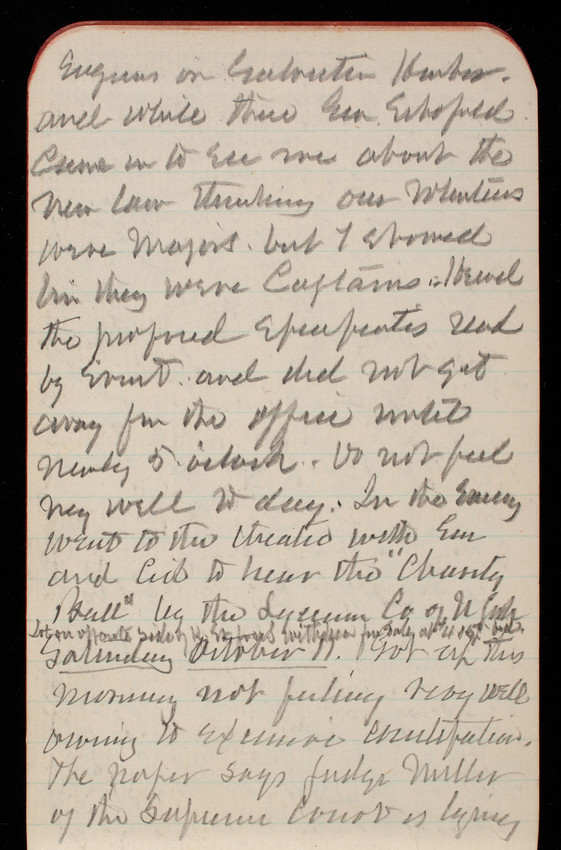 Engineers on Galveston Harbor.
and while there Gen Schofield
Came in to see me about the
new law thinking our
were Majors. but I showed
him they were Captains. Heard
the proposed Specificatis read
by Ernst. and did not get
away fm the office until
nearly 5 oclock. Do not feel
very well to day. In the Evening
went to the theatre with Em
and to hear the "Charity
Ball" by the Lyceum Co of N York
Lot on opposite side of
Saturday October 11. Got up this
morning not feeling very well
owing to excessive constipation.
The paper says Judge Miller
of the Supreme Court is lying